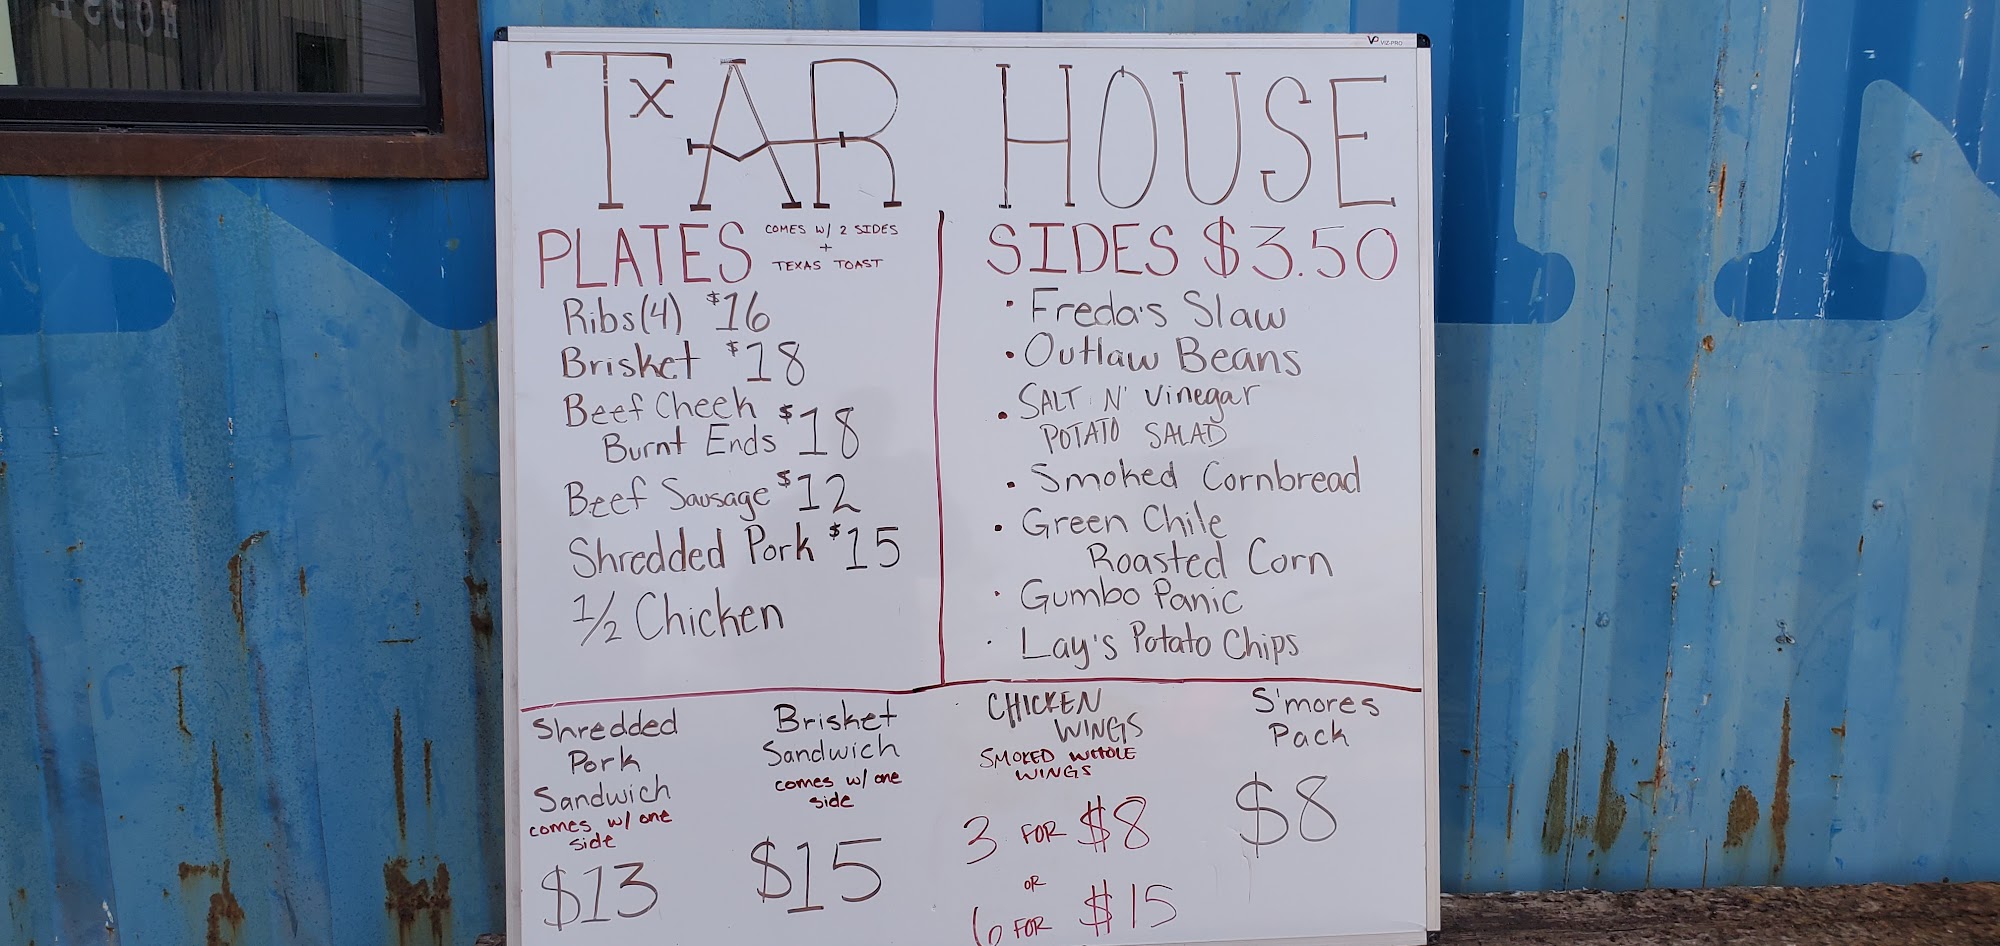 VIZ-PRO
TxAR HOUSE
PLATES
COMES W/ 2 SIDES
+
TEXAS TOAST
Ribs(4) $16
Brisket $18
Beef Cheek
Burnt Ends $18
Beef Sausage $12
Shredded Pork $15
1/2 Chicken
SIDES $3.50
· Freda's Slaw
· Outlaw Beans
· SALT N' Vinegar
POTATO SALAD
· Smoked Cornbread
· Green Chile
Roasted Corn
· Gumbo Panic
· Lay's Potato Chips
Shredded
Pork
Sandwich
comes w/ one
side
$13
Brisket
Sandwich
comes w/ one
side
$15
CHICKEN
WINGS
SMOKED WHOLE
WINGS
3 FOR $8
OR
6 FOR $15
S'mores
Pack
$8